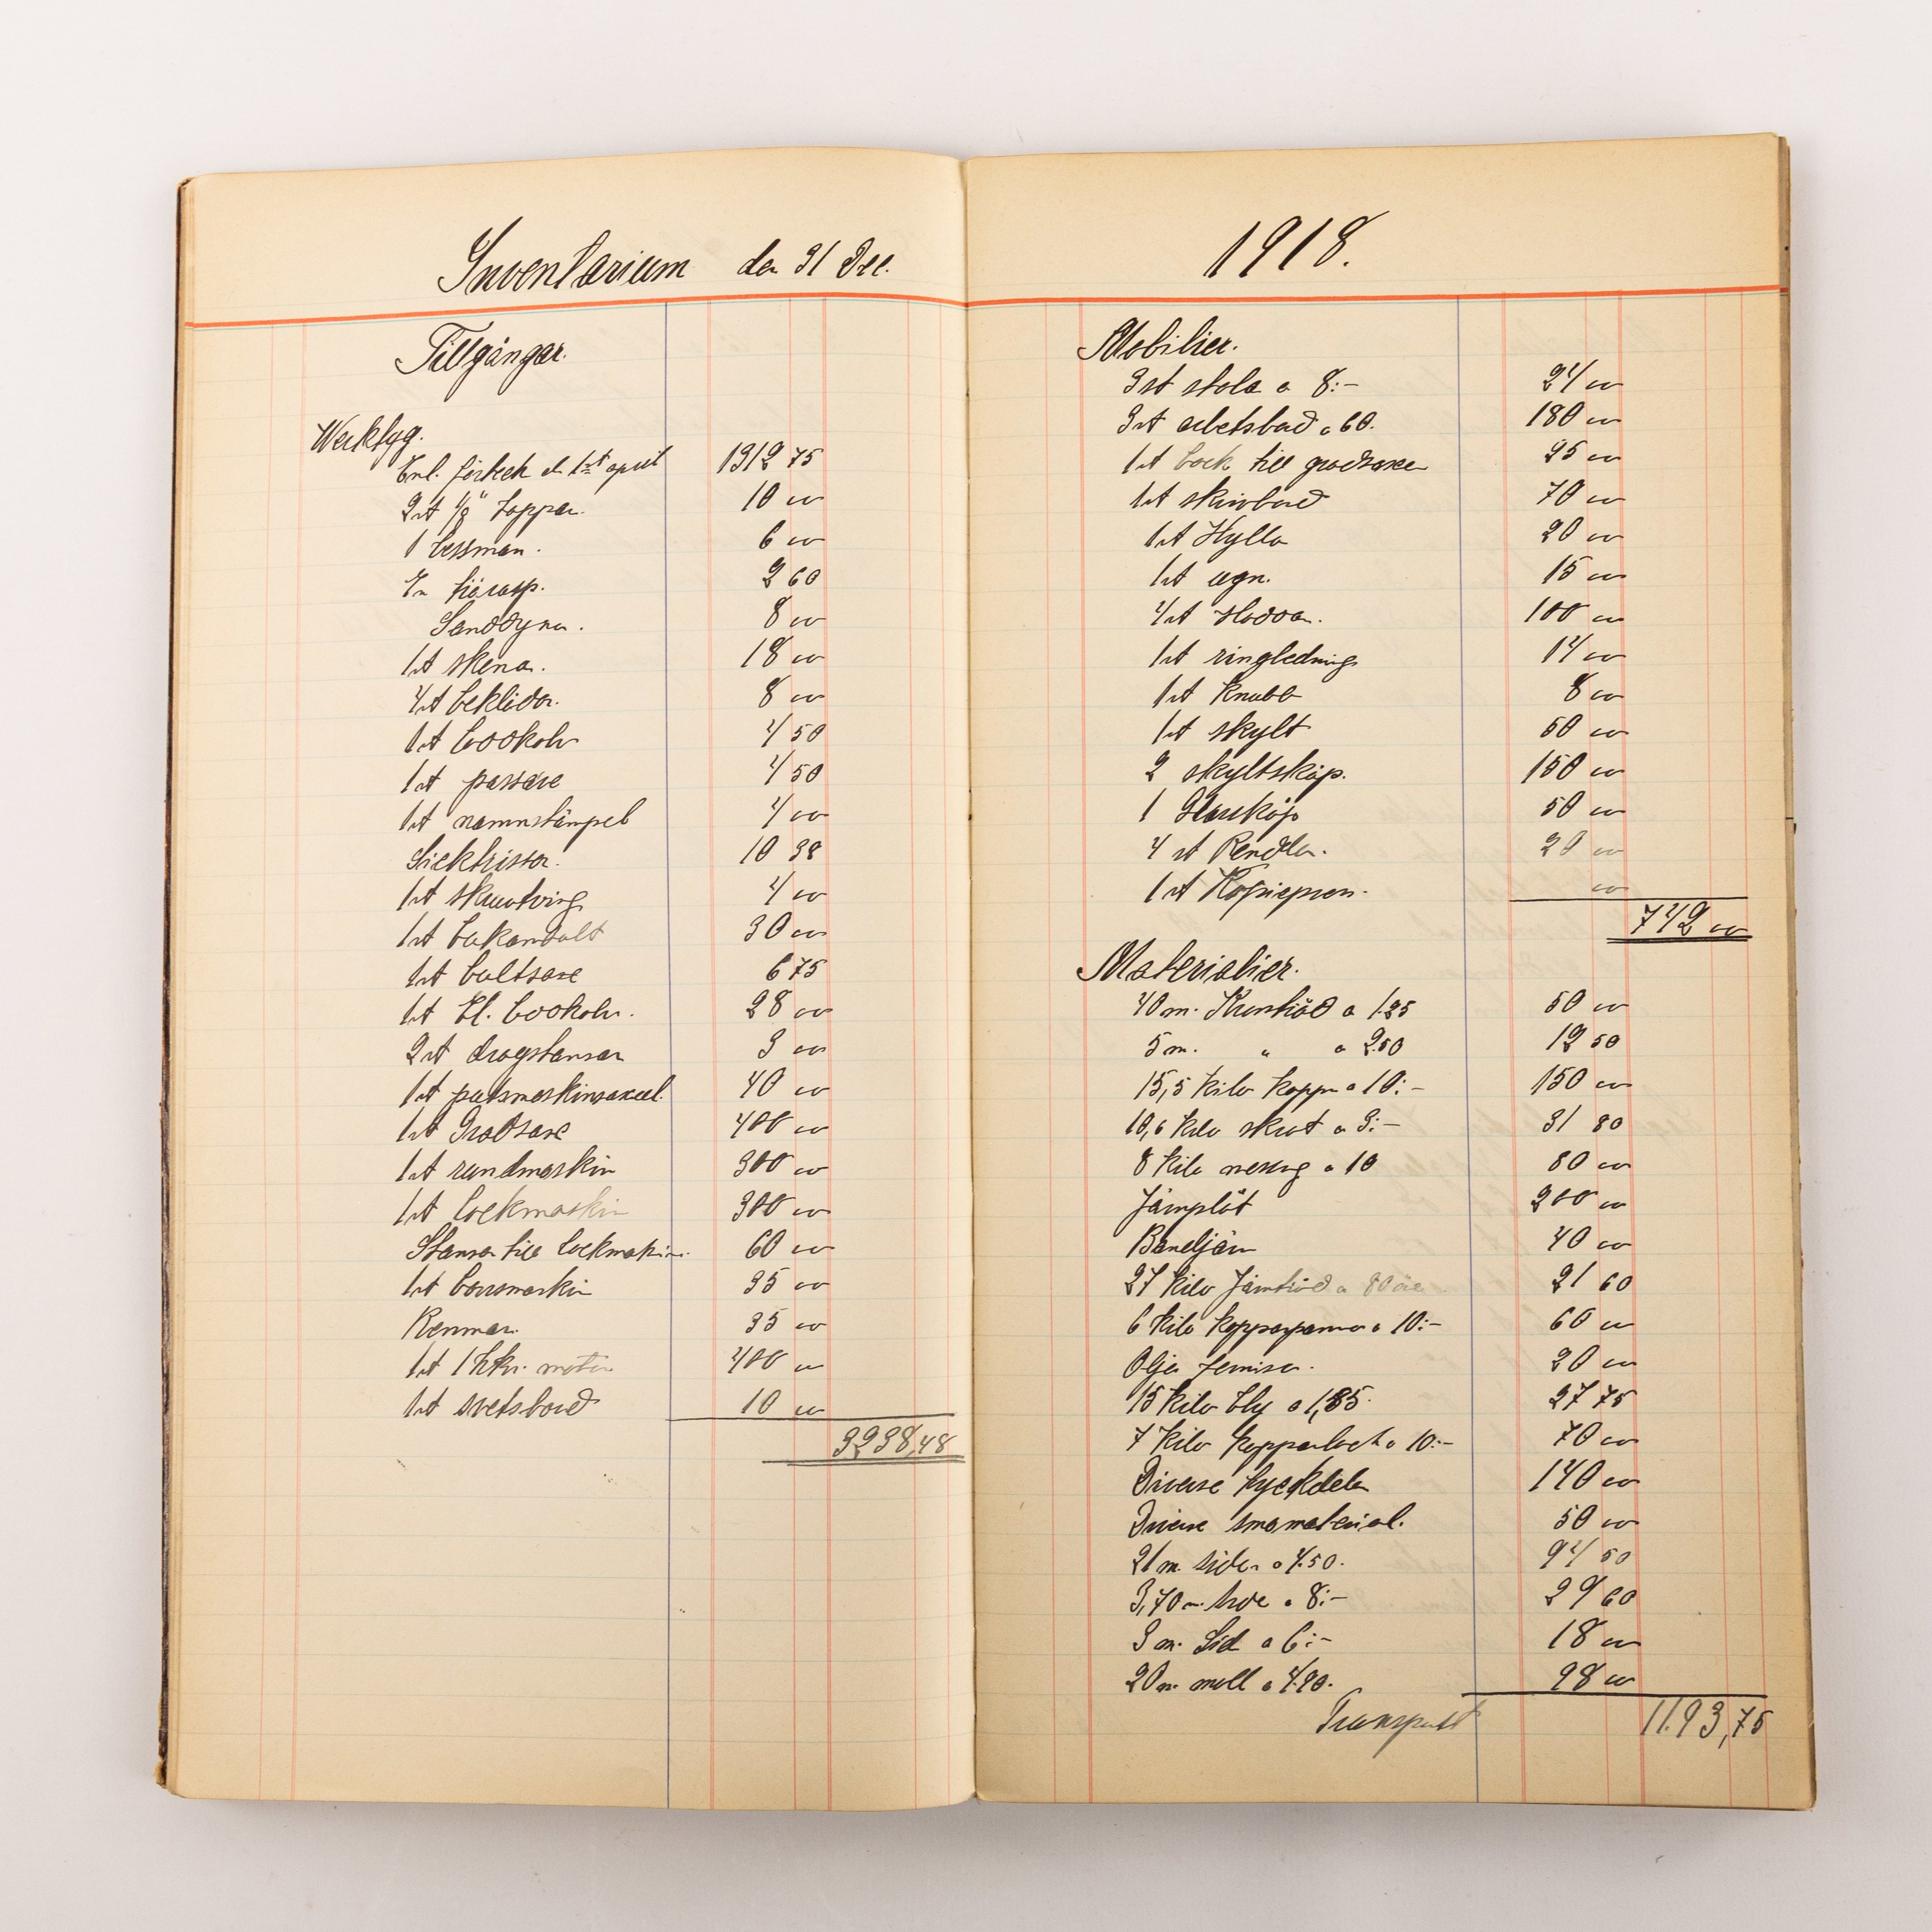 Inventarium den 31 Dec.
Tillgångar.
Werktyg.
Enl. förteck d. 1st april 1312 75
2 st 1/8" tappar. 10 00
1 bessman. 6 00
En trärasp. 2 60
Sanddyna. 8 00
1 st skena. 18 00
4 st beklädn. 8 00
1 st lödkolv 4 50
1 st passare 4 50
1 st namnstämpel 4 00
Sicktrissor. 10 38
1 st skruvtving 4 00
1 st 30 00
1 st bultsaxe 6 75
1 st El. lödkolv. 28 00
2 st dragstansar 3 00
1 st putsmaskinsaxel. 40 00
1 st Gradsaxe 400 00
1 st rundmaskin 300 00
1 st lockmaskin 300 00
Stansar till lockmaskin. 60 00
1 st borrmaskin 35 00
Remmar. 35 00
1 st 1 hkr. motor 400 00
1 st svetsbord 10 00
3238,48
1918.
Mobilier.
3 st stolar a 8:- 24 00
3 st arbetsbord a 60. 180 00
1 st bock till gradsaxen 25 00
1 st skrivbord 70 00
1 st Hylla 20 00
1 st ugn. 15 00
4 st 100 00
1 st ringledning 14 00
1 st Knubb 8 00
1 st skylt 50 00
2 skyltskåp. 150 00
1 Glasskåp 50 00
4 st Pendlar. 20 00
1 st Kopiepress. 00
742 00
Materialier.
40 m. a 1.25 50 00
5 m. " a 2.50 12 50
15,5 Kilo koppar a 10:- 150 00
10,6 Kilo skrot a 3:- 31 80
8 Kilo messing a 10 80 00
Järnplåt 200 00
Bandjärn 40 00
27 Kilo Järntråd a 80 öre 21 60
6 Kilo kopparpannor a 10:- 60 00
Olja fernissa. 20 00
15 Kilo bly a 1,85. 27 75
7 Kilo a 10:- 70 00
Diverse 140 00
Diverse småmaterial. 50 00
21 m. siden a 4.50. 94 50
3,70 m. a 8:- 29 60
3 m. Sid a 6:- 18 00
20 m. moll a 4.90. 98 00
Transport 1193,75